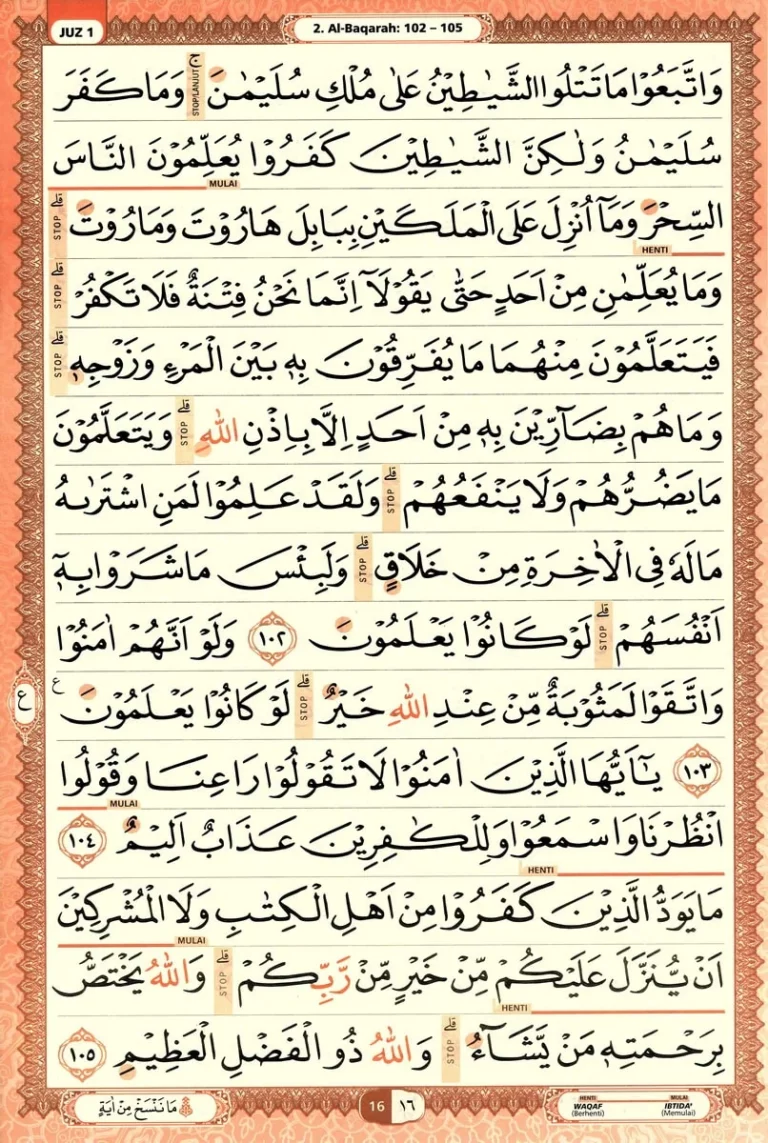 JUZ 1
2. Al-Baqarah: 102 – 105
وَاتَّبَعُوْا مَا تَتْلُوا الشَّيٰطِيْنُ عَلٰى مُلْكِ سُلَيْمٰنَ ۚ STOP/LANJUT وَمَا كَفَرَ
سُلَيْمٰنُ وَلٰكِنَّ الشَّيٰطِيْنَ كَفَرُوْا يُعَلِّمُوْنَ النَّاسَ
MULAI
السِّحْرَ وَمَآ اُنْزِلَ عَلَى الْمَلَكَيْنِ بِبَابِلَ هَارُوْتَ وَمَارُوْتَ ۗ STOP
HENTI
وَمَا يُعَلِّمٰنِ مِنْ اَحَدٍ حَتّٰى يَقُوْلَآ اِنَّمَا نَحْنُ فِتْنَةٌ فَلَا تَكْفُرْ ۗ STOP
فَيَتَعَلَّمُوْنَ مِنْهُمَا مَا يُفَرِّقُوْنَ بِهٖ بَيْنَ الْمَرْءِ وَزَوْجِهٖ ۗ STOP
وَمَا هُمْ بِضَاۤرِّيْنَ بِهٖ مِنْ اَحَدٍ اِلَّا بِاِذْنِ اللّٰهِ ۗ STOP وَيَتَعَلَّمُوْنَ
مَا يَضُرُّهُمْ وَلَا يَنْفَعُهُمْ ۗ STOP وَلَقَدْ عَلِمُوْا لَمَنِ اشْتَرٰىهُ
مَا لَهٗ فِى الْاٰخِرَةِ مِنْ خَلَاقٍ ۗ STOP وَلَبِئْسَ مَا شَرَوْا بِهٖٓ
اَنْفُسَهُمْ ۗ STOP لَوْ كَانُوْا يَعْلَمُوْنَ ١٠٢ وَلَوْ اَنَّهُمْ اٰمَنُوْا
وَاتَّقَوْا لَمَثُوْبَةٌ مِّنْ عِنْدِ اللّٰهِ خَيْرٌ ۗ STOP لَوْ كَانُوْا يَعْلَمُوْنَ ع
ع
١٠٣ يٰٓاَيُّهَا الَّذِيْنَ اٰمَنُوْا لَا تَقُوْلُوْا رَاعِنَا وَقُوْلُوا
MULAI
انْظُرْنَا وَاسْمَعُوْا وَلِلْكٰفِرِيْنَ عَذَابٌ اَلِيْمٌ ١٠٤
HENTI
مَا يَوَدُّ الَّذِيْنَ كَفَرُوْا مِنْ اَهْلِ الْكِتٰبِ وَلَا الْمُشْرِكِيْنَ
MULAI
اَنْ يُّنَزَّلَ عَلَيْكُمْ مِّنْ خَيْرٍ مِّنْ رَّبِّكُمْ ۗ STOP وَاللّٰهُ يَخْتَصُّ
HENTI
بِرَحْمَتِهٖ مَنْ يَّشَاۤءُ ۗ STOP وَاللّٰهُ ذُو الْفَضْلِ الْعَظِيْمِ ١٠٥
مَا نَنْسَخْ مِنْ اٰيَةٍ
16 ١٦
HENTI WAQAF (Berhenti)
MULAI IBTIDA' (Memulai)